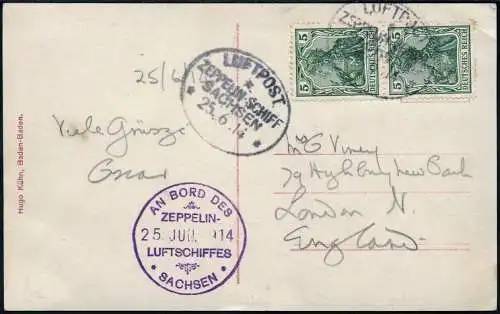 LUFTPOST
ZEPPELIN-SCHIFF
SACHSEN
25.6.14
5 5
DEUTSCHES REICH
5 5
DEUTSCHES REICH
25/6/
Viele Grüsze
Hugo Kühn, Baden-Baden.
AN BORD DES
ZEPPELIN-
25. JUN. 1914
LUFTSCHIFFES
SACHSEN
79 Highbury New Park
London N.
England